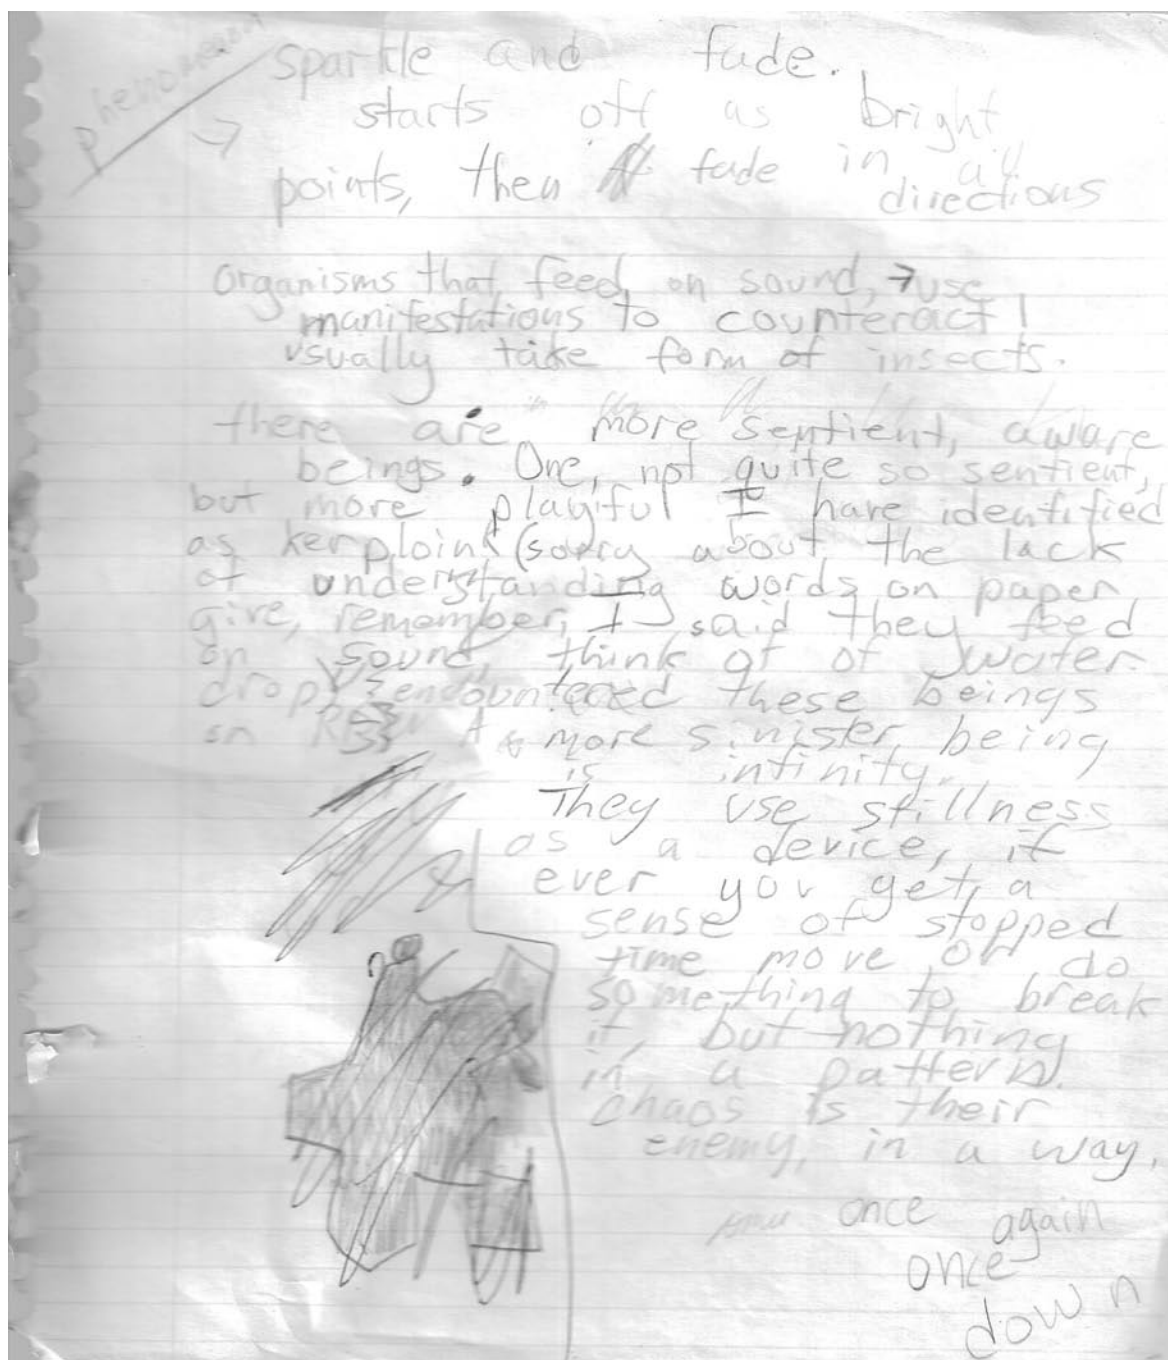 phenomenon
sparkle and fade.
→ starts off as bright
points, then fade in all
directions
organisms that feed on sound, → use
manifestations to counteract!
usually take form of insects.
there are more sentient, aware
beings. One, not quite so sentient,
but more playful I have identified
as kerploink (sorry about the lack
of understanding words on paper
give, remember, I said they feed
on sound, think of of water
drop encountered these beings
on A more sinister being
is infinity.
They use stillness
as a device, if
ever you get a
sense of stopped
time move or do
something to break
it, but nothing
in a pattern.
chaos is their
enemy, in a way.
once again
once
down